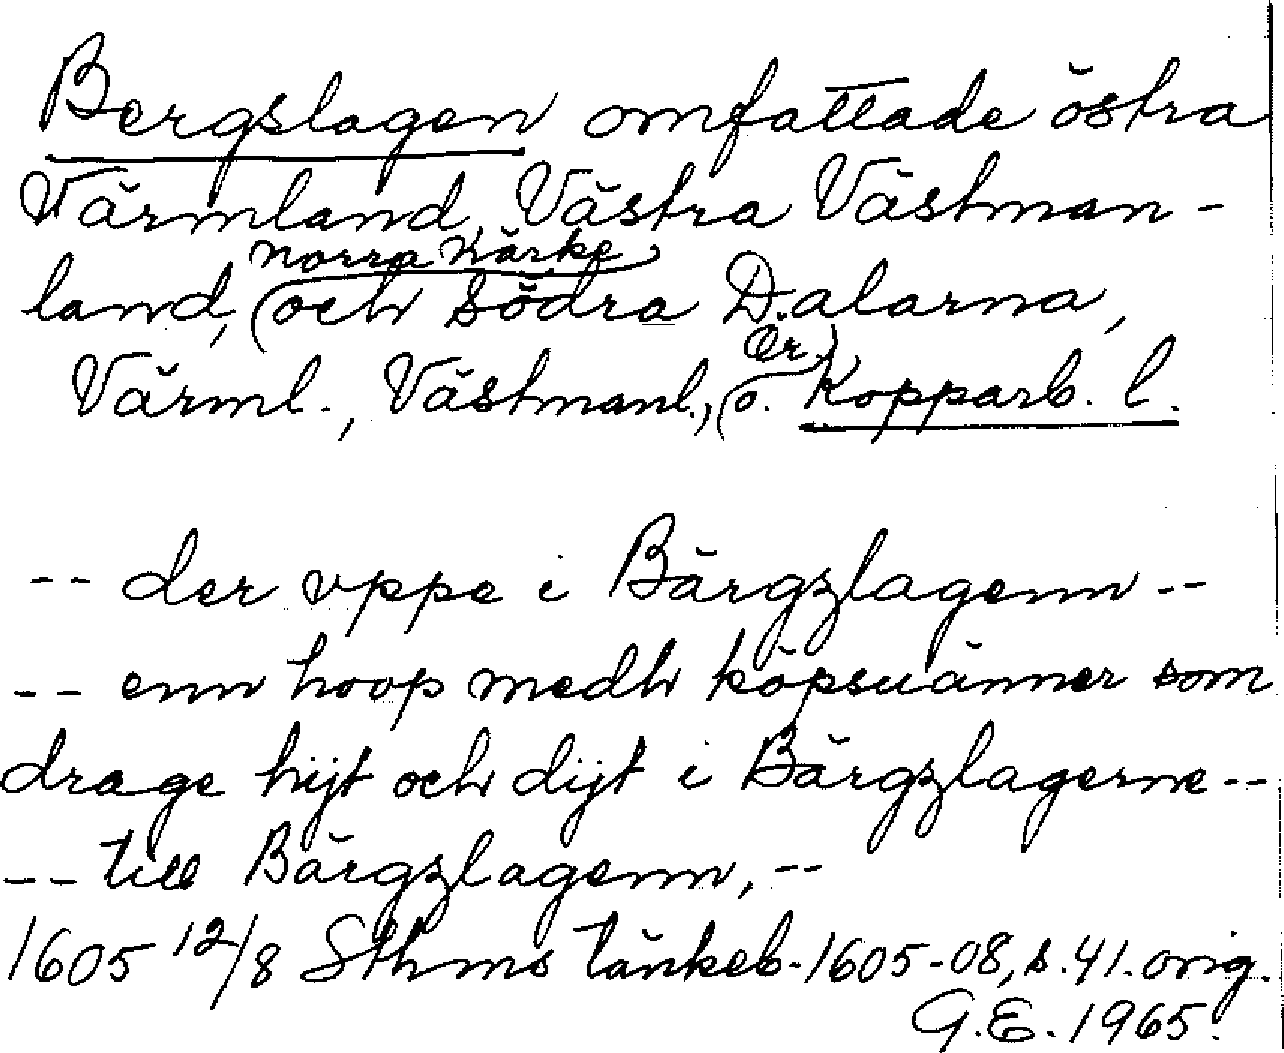 Bergslagen omfattade östra
Värmland, Västra Västman-
land, norra Närke och södra Dalarna,
Värml., Västmanl., Ör. o. Kopparb. l.
-- der vppe i Bärgzlagenn --
-- enn hoop medh köpsuänner som
drage hijt och dijt i Bärgzlagerne --
-- till Bärgzlagenn, --
1605 12/8 Sthms tänkeb. 1605-08, s. 41. orig.
G.E. 1965.